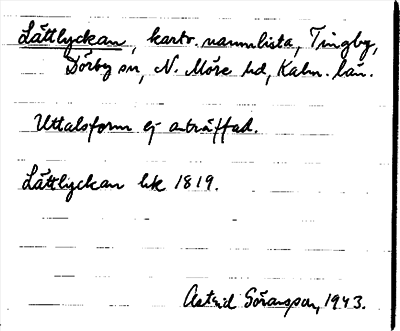 Lättlyckan, kartv. namnlista, Tingby,
Dörby sn, N. Möre hd, Kalm. län.
Uttalsform ej anträffad.
Lättlyckan lhk 1819.
Astrid Göransson, 1943.